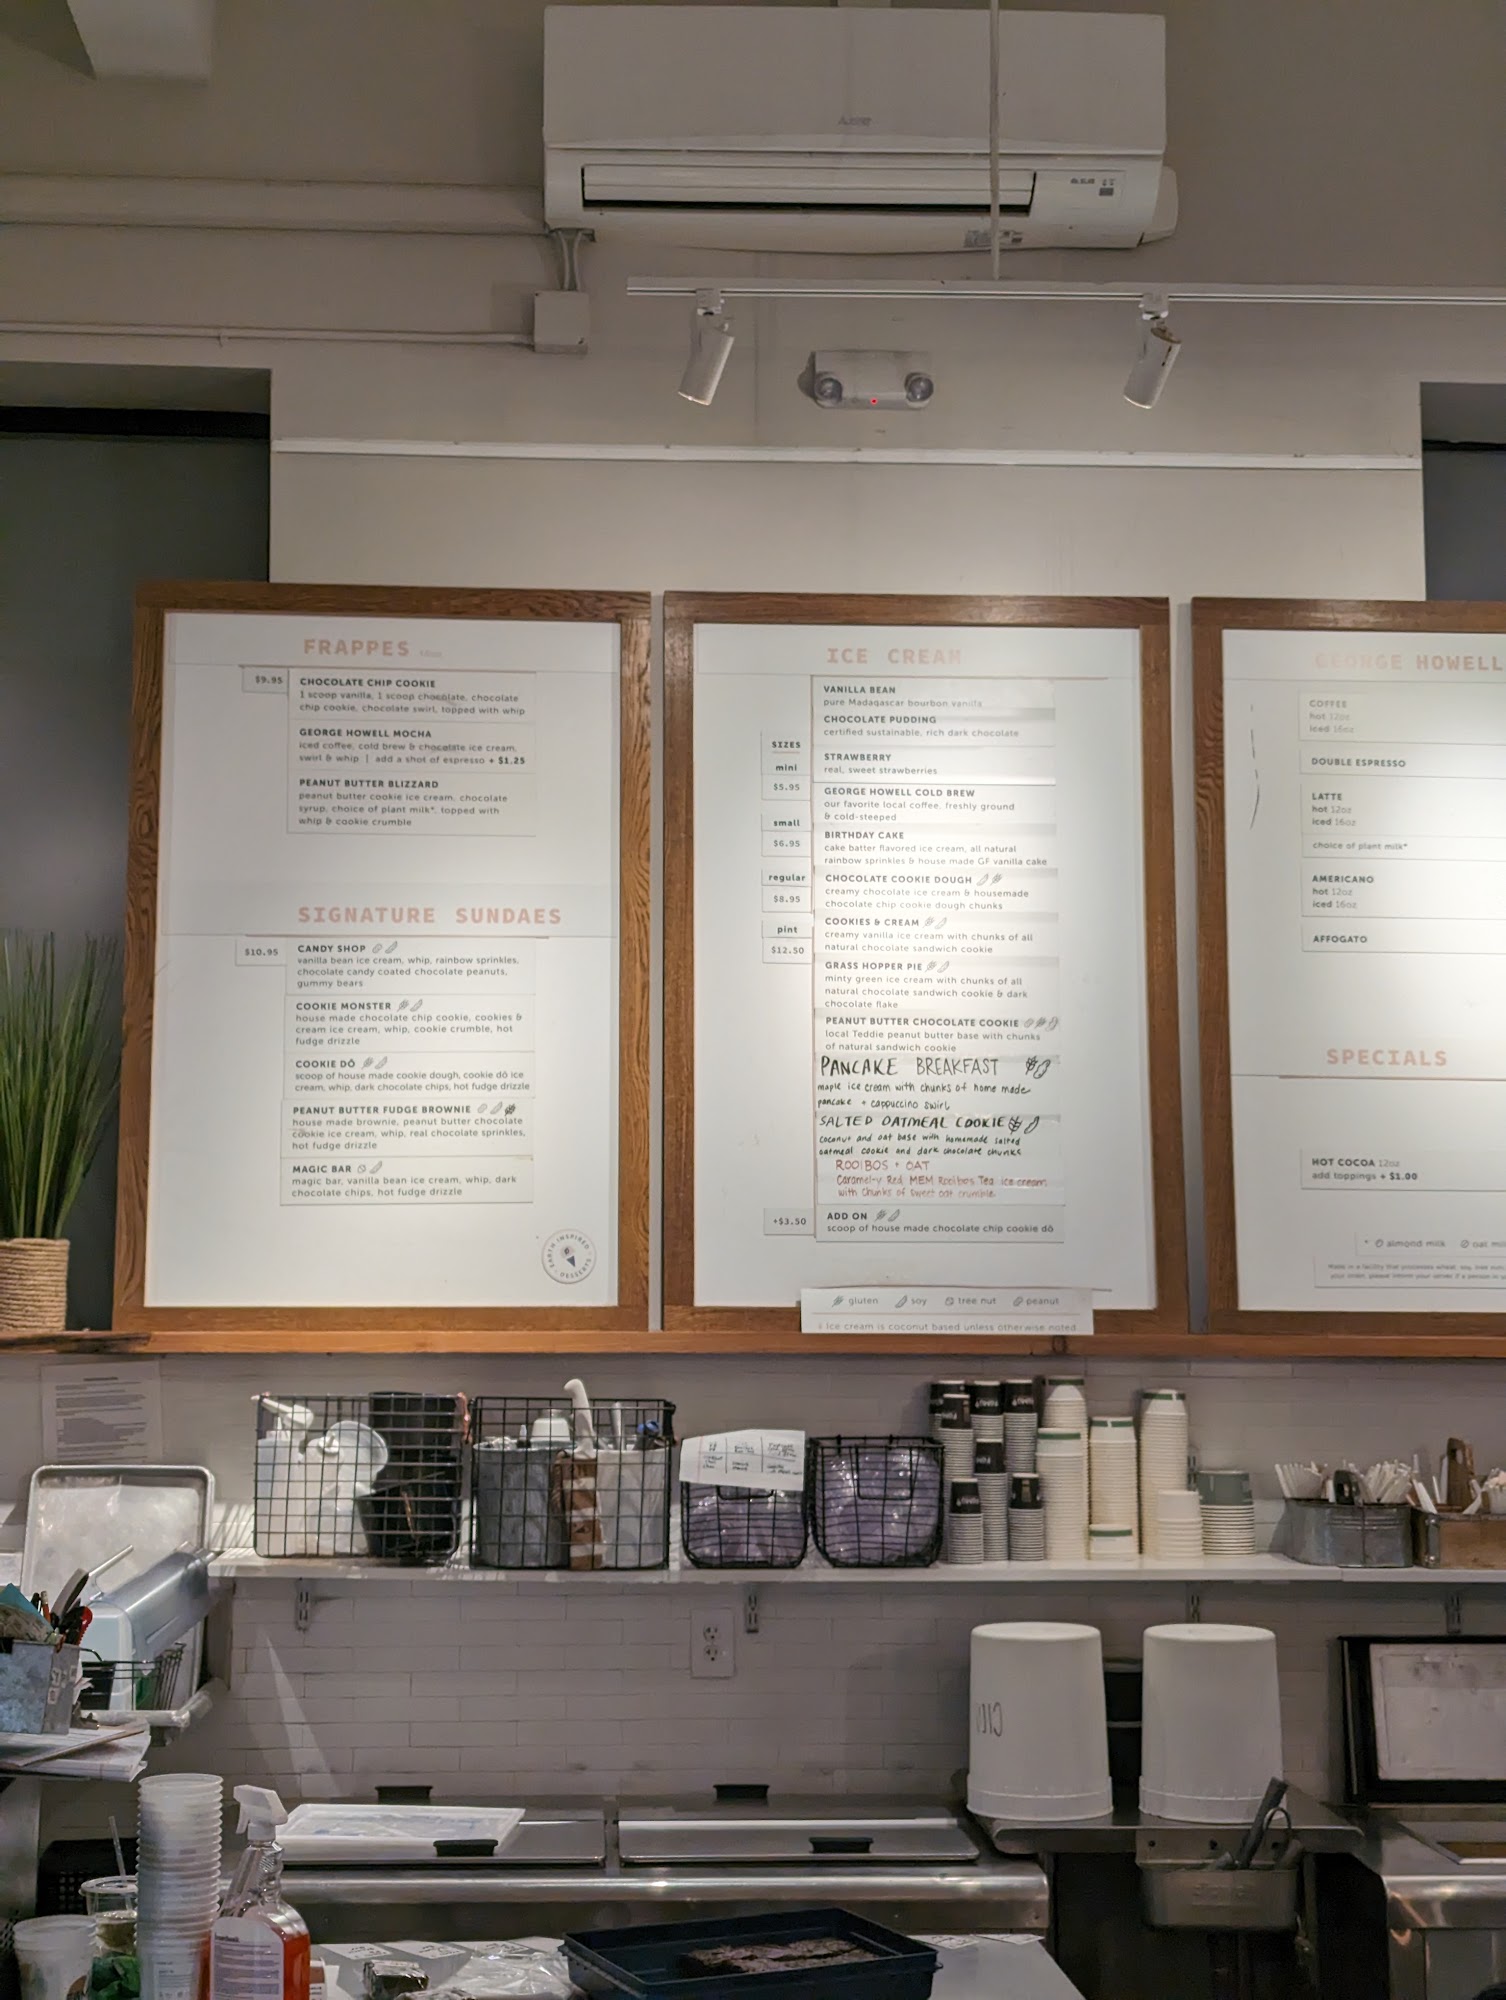 FRAPPES 16oz
$9.95
CHOCOLATE CHIP COOKIE
1 scoop vanilla, 1 scoop chocolate, chocolate
chip cookie, chocolate swirl, topped with whip
GEORGE HOWELL MOCHA
iced coffee, cold brew & chocolate ice cream,
swirl & whip | add a shot of espresso + $1.25
PEANUT BUTTER BLIZZARD
peanut butter cookie ice cream, chocolate
syrup, choice of plant milk*, topped with
whip & cookie crumble
SIGNATURE SUNDAES
$10.95
CANDY SHOP
vanilla bean ice cream, whip, rainbow sprinkles,
chocolate candy coated chocolate peanuts,
gummy bears
COOKIE MONSTER
house made chocolate chip cookie, cookies &
cream ice cream, whip, cookie crumble, hot
fudge drizzle
COOKIE DŌ
scoop of house made cookie dough, cookie dō ice
cream, whip, dark chocolate chips, hot fudge drizzle
PEANUT BUTTER FUDGE BROWNIE
house made brownie, peanut butter chocolate
cookie ice cream, whip, real chocolate sprinkles,
hot fudge drizzle
MAGIC BAR
magic bar, vanilla bean ice cream, whip, dark
chocolate chips, hot fudge drizzle
EARTH INSPIRED
DESSERTS
ICE CREAM
SIZES
mini
$5.95
small
$6.95
regular
$8.95
pint
$12.50
VANILLA BEAN
pure Madagascar bourbon vanilla
CHOCOLATE PUDDING
certified sustainable, rich dark chocolate
STRAWBERRY
real, sweet strawberries
GEORGE HOWELL COLD BREW
our favorite local coffee, freshly ground
& cold-steeped
BIRTHDAY CAKE
cake batter flavored ice cream, all natural
rainbow sprinkles & house made GF vanilla cake
CHOCOLATE COOKIE DOUGH
creamy chocolate ice cream & housemade
chocolate chip cookie dough chunks
COOKIES & CREAM
creamy vanilla ice cream with chunks of all
natural chocolate sandwich cookie
GRASS HOPPER PIE
minty green ice cream with chunks of all
natural chocolate sandwich cookie & dark
chocolate flake
PEANUT BUTTER CHOCOLATE COOKIE
local Teddie peanut butter base with chunks
of natural sandwich cookie
PANCAKE BREAKFAST
maple ice cream with chunks of home made
pancake + cappuccino swirl
SALTED OATMEAL COOKIE
coconut and oat base with homemade salted
oatmeal cookie and dark chocolate chunks
ROOIBOS + OAT
Caramel-y Red MEM Rooibos Tea ice cream
with chunks of sweet oat crumble
+$3.50
ADD ON
scoop of house made chocolate chip cookie dō
gluten soy tree nut peanut
Ice cream is coconut based unless otherwise noted
GEORGE HOWELL
COFFEE
hot 12oz
iced 16oz
DOUBLE ESPRESSO
LATTE
hot 12oz
iced 16oz
choice of plant milk*
AMERICANO
hot 12oz
iced 16oz
AFFOGATO
SPECIALS
HOT COCOA 12oz
add toppings + $1.00
* almond milk oat